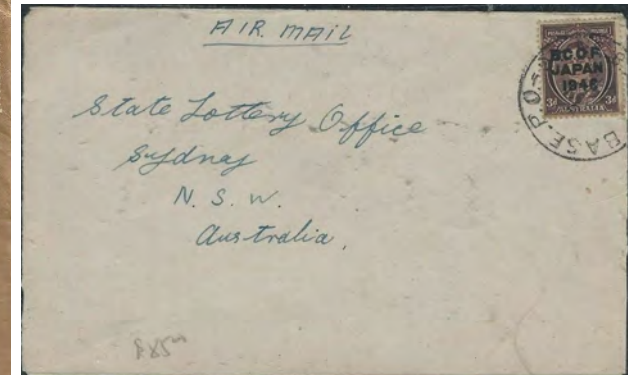 AIR MAIL
B.C.O.F.
JAPAN
1946
3d AUSTRALIA 3d
BASE P.O.
State Lottery Office
Sydney
N. S. W.
Australia.